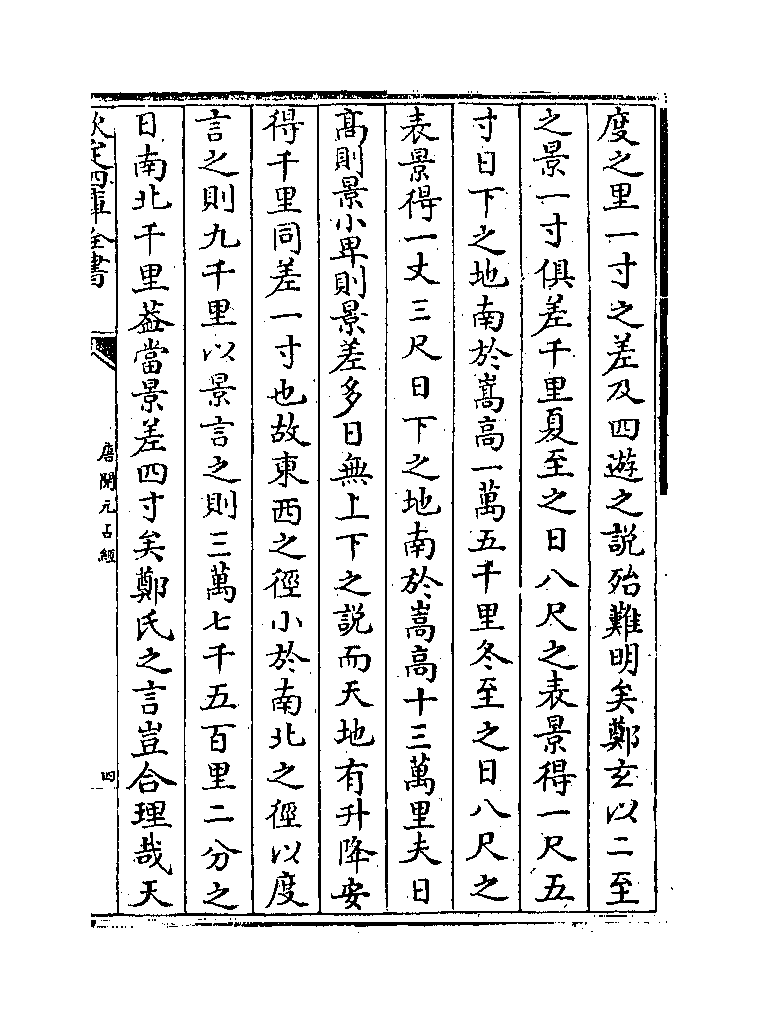 度之里一寸之差及四遊之説殆難明矣鄭玄以二至
之景一寸俱差千里夏至之日八尺之表景得一尺五
寸日下之地南於嵩高一萬五千里冬至之日八尺之
表景得一丈三尺日下之地南於嵩高十三萬里夫日
髙則景小卑則景差多日無上下之説而天地有升降安
得千里同差一寸也故東西之徑小於南北之徑以度
言之則九千里以景言之則三萬七千五百里二分之
日南北千里葢當景差四寸矣鄭氏之言豈合理哉天
欽定四庫全書
唐開元占經
四